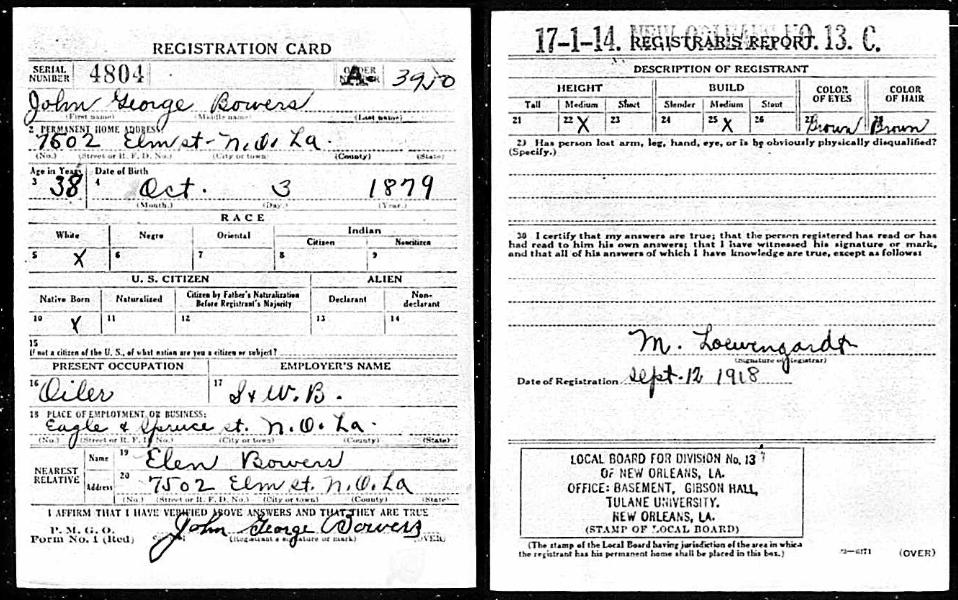 REGISTRATION CARD
SERIAL NUMBER 4804 ORDER NUMBER A 3950
John George Bowers
(First name) (Middle name) (Last name)
2 PERMANENT HOME ADDRESS:
7502 Elm st - N.O. La.
(No.) (Street or R. F. D. No.) (City or town) (County) (State)
Age in Years Date of Birth
3 38 4 Oct. 3 1879
(Month.) (Day.) (Year.)
RACE
White Negro Oriental Indian
Citizen Noncitizen
5 X 6 7 8 9
U. S. CITIZEN ALIEN
Native Born Naturalized Citizen by Father's Naturalization Before Registrant's Majority Declarant Non-declarant
10 X 11 12 13 14
15
If not a citizen of the U. S., of what nation are you a citizen or subject?
PRESENT OCCUPATION EMPLOYER'S NAME
16 Oiler 17 S & W. B.
18 PLACE OF EMPLOYMENT OR BUSINESS:
Eagle & Spruce st. N.O. La.
(No.) (Street or R. F. D. No.) (City or town) (County) (State)
NEAREST RELATIVE Name 19 Elen Bowers
Address 20 7502 Elm st. N.O. La
(No.) (Street or R. F. D. No.) (City or town) (County) (State)
I AFFIRM THAT I HAVE VERIFIED ABOVE ANSWERS AND THAT THEY ARE TRUE
P. M. G. O.
Form No. 1 (Red) John George Bowers
(Registrant's signature or mark) (OVER)
17-1-14. NEW ORLEANS NO. 13. C.
REGISTRAR'S REPORT
DESCRIPTION OF REGISTRANT
HEIGHT BUILD COLOR OF EYES COLOR OF HAIR
Tall Medium Short Slender Medium Stout
21 22 X 23 24 25 X 26 27 Brown 28 Brown
29 Has person lost arm, leg, hand, eye, or is he obviously physically disqualified?
(Specify.)
30 I certify that my answers are true; that the person registered has read or has
had read to him his own answers; that I have witnessed his signature or mark,
and that all of his answers of which I have knowledge are true, except as follows:
M. Loewengardt
(Signature of Registrar)
Date of Registration Sept-12 1918
LOCAL BOARD FOR DIVISION No. 13
OF NEW ORLEANS, LA.
OFFICE: BASEMENT, GIBSON HALL,
TULANE UNIVERSITY.
NEW ORLEANS, LA.
(STAMP OF LOCAL BOARD)
(The stamp of the Local Board having jurisdiction of the area in which
the registrant has his permanent home shall be placed in this box.)
(OVER)